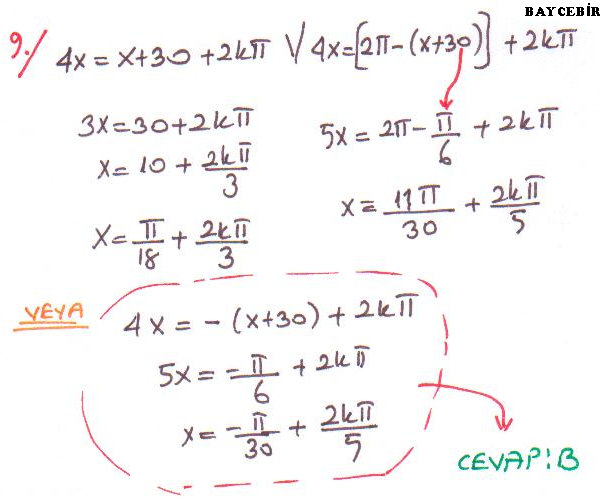 BAYCEBİR
9./ 4x = x+30+2kπ V 4x = [2π-(x+30)] + 2kπ
3x=30+2kπ
x= 10 + 2kπ/3
x= π/18 + 2kπ/3
5x = 2π - π/6 + 2kπ
x = 11π/30 + 2kπ/5
VEYA
4x = -(x+30) + 2kπ
5x = -π/6 + 2kπ
x = -π/30 + 2kπ/5
CEVAP:B